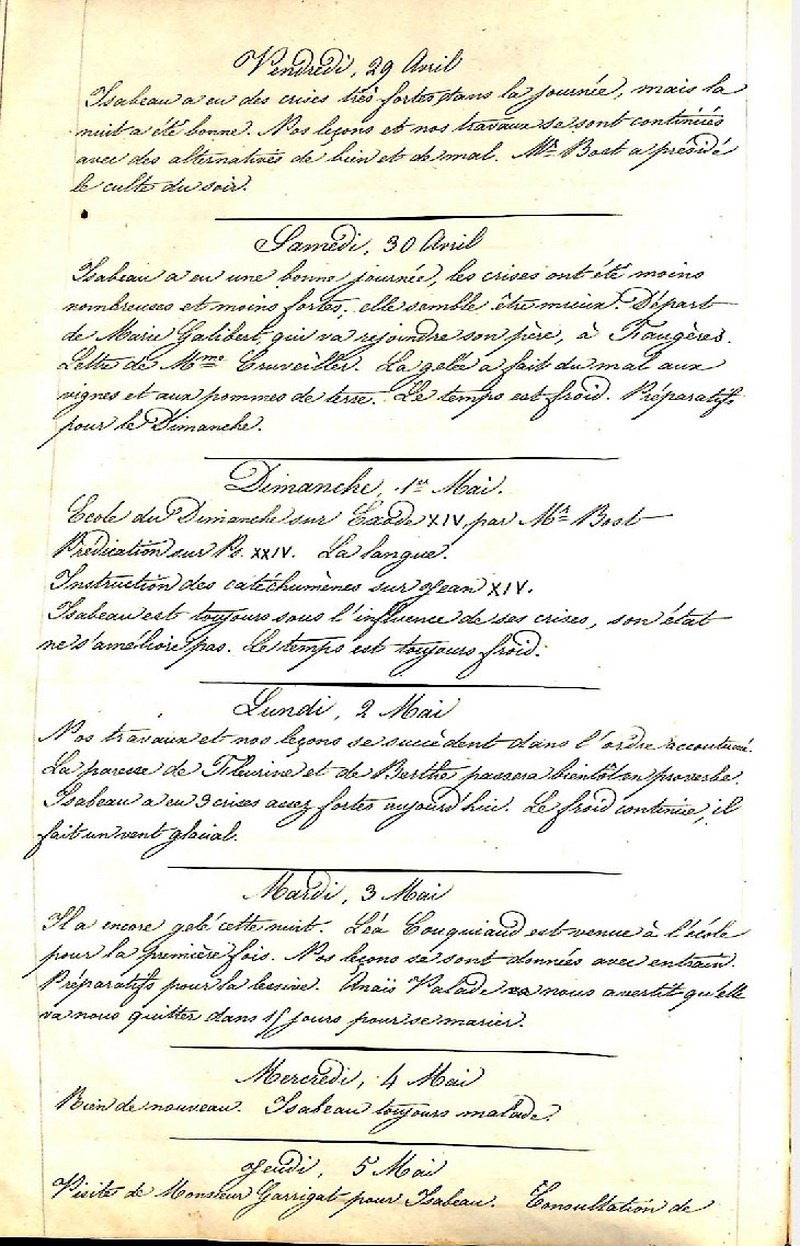 Vendredi, 29 Avril
Isabeau a eu des crises très fortes dans la journée, mais la
nuit a été bonne. Nos leçons et nos travaux se sont continués
avec des alternatives de bien et de mal. Mr. Bost a présidé
le culte du soir.
Samedi, 30 Avril
Isabeau a eu une bonne journée, les crises ont été moins
nombreuses et moins fortes, elle semble être mieux. Départ
de Marie Galibert, qui va rejoindre son père, à Faugères.
Lettre de Mme Cruveiller. La gelée a fait du mal aux
vignes et aux pommes de terre. Le temps est froid. Préparatifs
pour le Dimanche.
Dimanche, 1er Mai.
Ecole du Dimanche sur Exode XIV, par Mr. Bost
Prédication sur Ps. XXIV. La langue.
Instruction des catéchumènes sur Jean XIV.
Isabeau est toujours sous l'influence de ses crises, son état
ne s'améliore pas. Le temps est toujours froid.
Lundi, 2 Mai
Nos travaux et nos leçons se succèdent dans l'ordre accoutumé.
La paresse de Fleurine et de Berthe passera bientôt en proverbe.
Isabeau a eu 3 crises assez fortes aujourd'hui. Le froid continue, il
fait un vent glacial.
Mardi, 3 Mai
Il a encore gelé cette nuit. Léa Couquiaud est venue à l'école
pour la première fois. Nos leçons se sont données avec entrain.
Préparatifs pour la lessive. Anaïs Valade va nous avertit qu'elle
va nous quitter dans 15 jours pour se marier.
Mercredi, 4 Mai
Rien de nouveau. Isabeau toujours malade.
Jeudi, 5 Mai
Visites de Monsieur Garrigat pour Isabeau. Consultation de